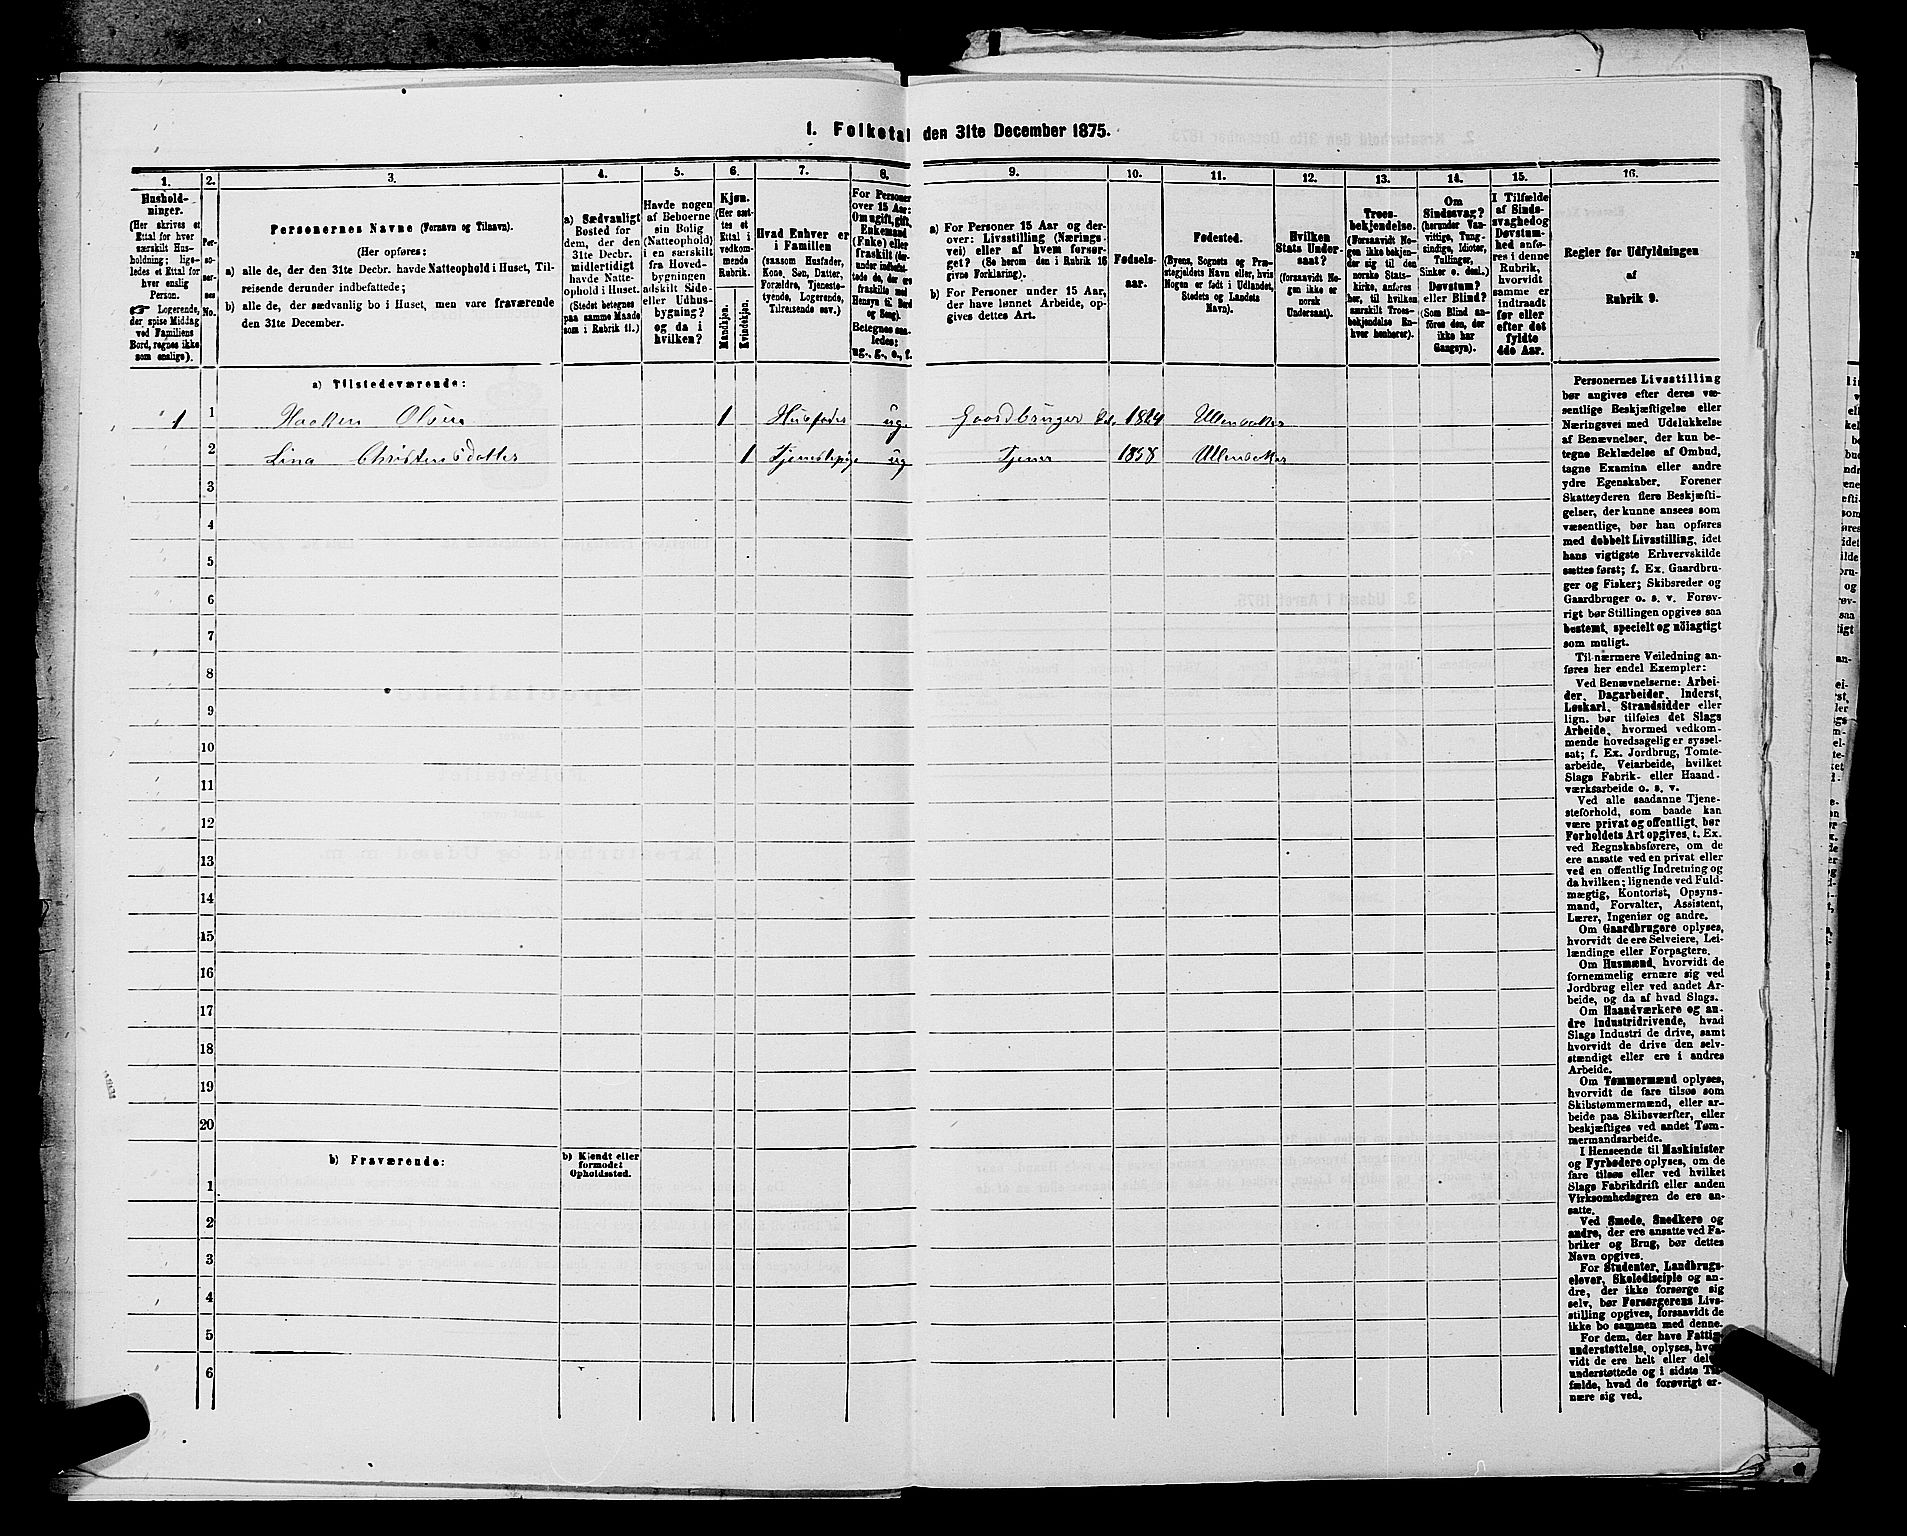 1. Folketal den 31te December 1875.
1. 2. 3. 4. 5. 6. 7. 8. 9. 10. 11. 12. 13. 14. 15. 16.
Hushold-
ninger.
(Her skrives et
Ettal for hver
særskilt Hus-
holdning; lige-
ledes et Ettal for
hver enslig
Person.
☞ Logerende,
der spise Middag
ved Familiens
Bord, regnes ikke
som enslige).
Per-
so-
ner-
nes
No.
Personernes Navne (Fornavn og Tilnavn).
(Her opføres:
a) alle de, der den 31te Decbr. havde Natteophold i Huset, Til-
reisende derunder indbefattede;
b) alle de, der sædvanlig bo i Huset, men vare fraværende
den 31te December.
a) Sædvanligt
Bosted for
dem, der den
31te Decbr.
midlertidigt
havde Natte-
ophold i Huset.
(Stedet betegnes
paa samme Maade
som i Rubrik 11.)
Havde nogen
af Beboerne
sin Bolig
(Natteophold)
i en særskilt
fra Hoved-
bygningen
adskilt Side-
eller Udhus-
bygning?
og da i
hvilken?
Kjøn.
(Her sæt-
tes et
Ettal i
vedkom-
mende
Rubrik.
Mandkjøn.
Kvindekjøn.
Hvad Enhver er
i Familien
(saasom Husfader,
Kone, Søn, Datter,
Forældre, Tjeneste-
tyende, Logerende,
Tilreisende osv.)
For Personer
over 15 Aar:
Om ugift, gift,
Enkemand
(Enke) eller
fraskilt (der-
under indbefat-
tede de, der ere
fraskilte med
Hensyn til Bord
og Seng).
Betegnes saa-
ledes:
ug., g., e., f.
a) For Personer 15 Aar og der-
over: Livsstilling (Nærings-
vei) eller af hvem forsør-
get? (Se herom den i Rubrik 16
givne Forklaring).
b) For Personer under 15 Aar,
der have lønnet Arbeide, op-
gives dettes Art.
Fødsels-
aar.
Fødested.
(Byens, Sognets og Præ-
stegjeldets Navn eller, hvis
Nogen er født i Udlandet,
Stedets og Landets
Navn).
Hvilken
Stats Under-
saat?
(foraavidt No-
gen ikke er
norsk
Undersaat).
Troes-
bekjendelse.
(Forsaavidt No-
gen ikke bekjen-
der sig til den
norske Stats-
kirke, anføres
her, til hvilken
særskilt Troes-
bekjendelse En-
hver henhører).
Om
Sindssvag?
(herunder Van-
vittige, Tung-
sindige, Idioter,
Tullinger,
Sinker o. desl.)
Døvstum?
eller Blind?
(Som Blind an-
føres den, der
ikke har
Gangsyn).
I Tilfælde
af Sinds-
svaghed og
Døvstum-
hed anfø-
res i denne
Rubrik,
hvorvidt
samme er
indtraadt
før eller
efter det
fyldte
4de Aar.
Regler for Udfyldningen
af
Rubrik 9.
a) Tilstedeværende:
1 1 Haaken Olsen 1 Husfader ug. Gaardbruger 1824 Ullensaker
2 Lina Christensdatter 1 Tjenestepige ug Tjener 1858 Ullensaker
3
4
5
6
7
8
9
10
11
12
13
14
15
16
17
18
19
20
b) Fraværende:
b) Kjendt eller
formodet
Opholdssted.
1
2
3
4
5
6
Personernes Livsstilling
bør angives efter deres væ-
sentlige Beskjæftigelse eller
Næringsvei med Udelukkelse
af Benævnelser, der kun be-
tegne Beklædelse af Ombud,
tagne Examina eller andre
ydre Egenskaber. Forener
Skatteyderen flere Beskjæfti-
gelser, der kunne ansees som
væsentlige, bør han opføres
med dobbelt Livsstilling, idet
hans vigtigste Erhvervskilde
sættes først; f. Ex. Gaardbru-
ger og Fisker; Skibsreder og
Gaardbruger o. s. v. Forøv-
rigt bør Stillingen opgives saa
bestemt, specielt og nöiagtigt
som muligt.
Til nærmere Veiledning an-
føres her endel Exempler:
Ved Benævnelserne: Arbei-
der, Dagarbeider, Inderst,
Løskarl, Strandsidder eller
lign. bør tilføies det Slags
Arbeide, hvormed vedkom-
mende hovedsagelig er syssel-
sat; f. Ex. Jordbrug, Tomte-
arbeide, Veiarbeide, hvilket
Slags Fabrik- eller Haand-
værksarbeide o. s. v.
Ved alle saadanne Tjene-
steforhold, som baade kan
være privat og offentligt, bør
Forholdets Art opgives, t. Ex.
ved Regnskabsførere, om de
ere ansatte ved en privat eller
ved en offentlig Indretning og
da hvilken; lignende ved Fuld-
mægtig, Kontorist, Opsyns-
mand, Forvalter, Assistent,
Lærer, Ingeniør og andre.
Om Gaardbrugere oplyses,
hvorvidt de ere Selveiere, Lei-
lændinge eller Forpagtere.
Om Husmænd, hvorvidt de
fornemmelig ernære sig ved
Jordbrug eller ved andet Ar-
beide, og da af hvad Slags.
Om Haandværkere og an-
dre Industridrivende, hvad
Slags Industri de drive, samt
hvorvidt de drive den selv-
stændigt eller ere i andres
Arbeide.
Om Tømmermænd oplyses,
hvorvidt de fare tilsøs som
Skibstømmermænd, eller ar-
beide paa Skibsværfter, eller
beskjæftiges ved andet Tøm-
mermandsarbeide.
I Henseende til Maskinister
og Fyrbødere oplyses, om de
fare tilsøs eller ved hvilket
Slags Fabrikdrift eller anden
Virksomhedsgren de ere an-
satte.
Ved Smede, Snedkere og
andre, der ere ansatte ved Fa-
briker og Brug, bør dettes
Navn opgives.
For Studenter, Landbrugs-
elever, Skoledisciple og an-
dre, der ikke forsørge sig
selv, bør Forsørgerens Livs-
stilling opgives, forsaavidt de
ikke bo sammen med denne.
For dem, der have Fattig-
understøttelse, oplyses, hvor-
vidt de ere helt eller delvis
understøttede og i sidste Til-
fælde, hvad de forøvrigt er-
nære sig ved.